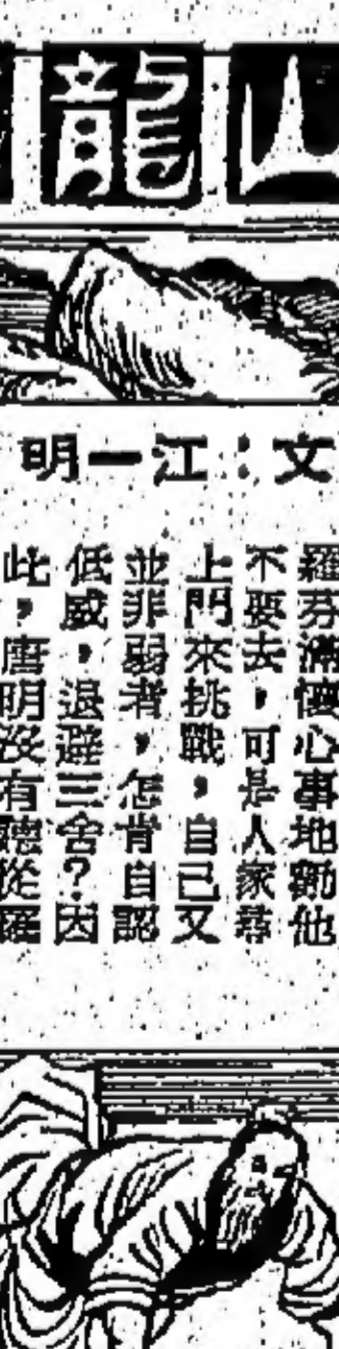 山龍
文：江一明
羅芬滿懷心事地勸他
不要去，可是人家尋
上門來挑戰，自己又
並非弱者，怎肯自認
低威，退避三舍？因
此，唐明沒有聽從羅